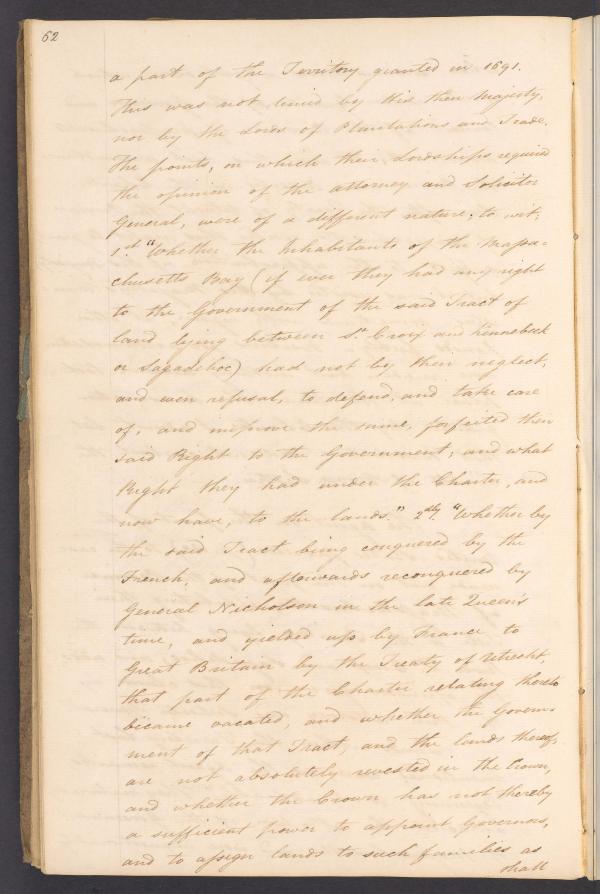 62
a part of the Territory granted in 1691.
This was not denied by His then Majesty,
nor by the Lords of Plantations and Trade.
The points, on which their Lordships required
the opinion of the attorney and Solicitor
General, were of a different nature; to wit;
1.st "Whether the Inhabitants of the Massa-
chusetts Bay (if ever they had any right
to the Government of the said Tract of
land lying between St. Croix and Kennebeck
or Sagadehoc) had not by their neglect,
and even refusal, to defend, and take care
of, and improve the same, forfeited their
said Right to the Government; and what
Right they had under the Charter, and
now have, to the lands." 2dly. "Whether by
the said Tract being conquered by the
French, and afterwards reconquered by
General Nicholson in the late Queen's
time, and yielded up by France to
Great Britain by the Treaty of Utrecht,
that part of the Charter relating thereto
became vacated, and whether the Govern-
ment of that Tract, and the lands thereof,
are not absolutely revested in the Crown,
and whether the Crown has not thereby
a sufficient power to appoint Governors,
and to assign lands to such families as
shall